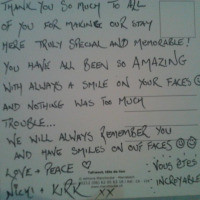 THANK YOU SO MUCH TO ALL
OF YOU FOR MAKING OUR STAY
HERE TRULY SPECIAL AND MEMORABLE!
YOU HAVE ALL BEEN SO AMAZING
WITH ALWAYS A SMILE ON YOUR FACES
AND NOTHING WAS TOO MUCH
TROUBLE...
WE WILL ALWAYS REMEMBER YOU
AND HAVE SMILES ON OUR FACES
LOVE + PEACE
VOUS ÊTES
INCROYABLE
NICKY + KIRK XX